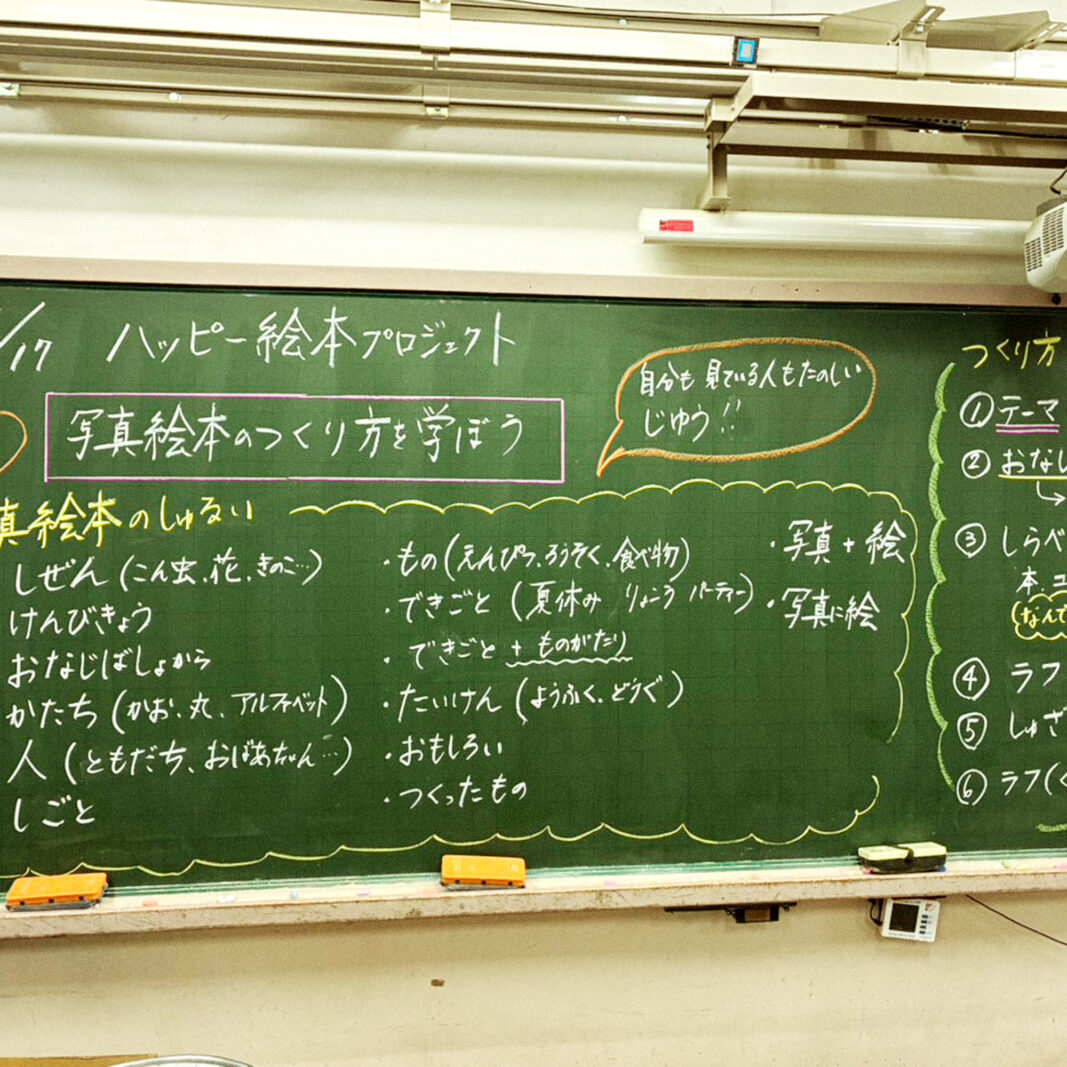 /17 ハッピー絵本プロジェクト
写真絵本のつくり方を学ぼう
自分も見ている人もたのしい
じゆう!!
真絵本のしゅるい
しぜん(こん虫、花、きのこ…)
けんびきょう
おなじばしょから
かたち(かお、丸、アルファベット)
人(ともだち、おばあちゃん…)
しごと
・もの(えんぴつ、ろうそく、食べ物)
・できごと(夏休み りょこう パーティー)
・できごと + ものがたり
・たいけん(ようふく、どうぐ)
・おもしろい
・つくったもの
・写真+絵
・写真に絵
つくり方
①テーマ
②おなし
③しらべ
本、エ
(なんで
④ラフ
⑤しゅざ
⑥ラフ(く